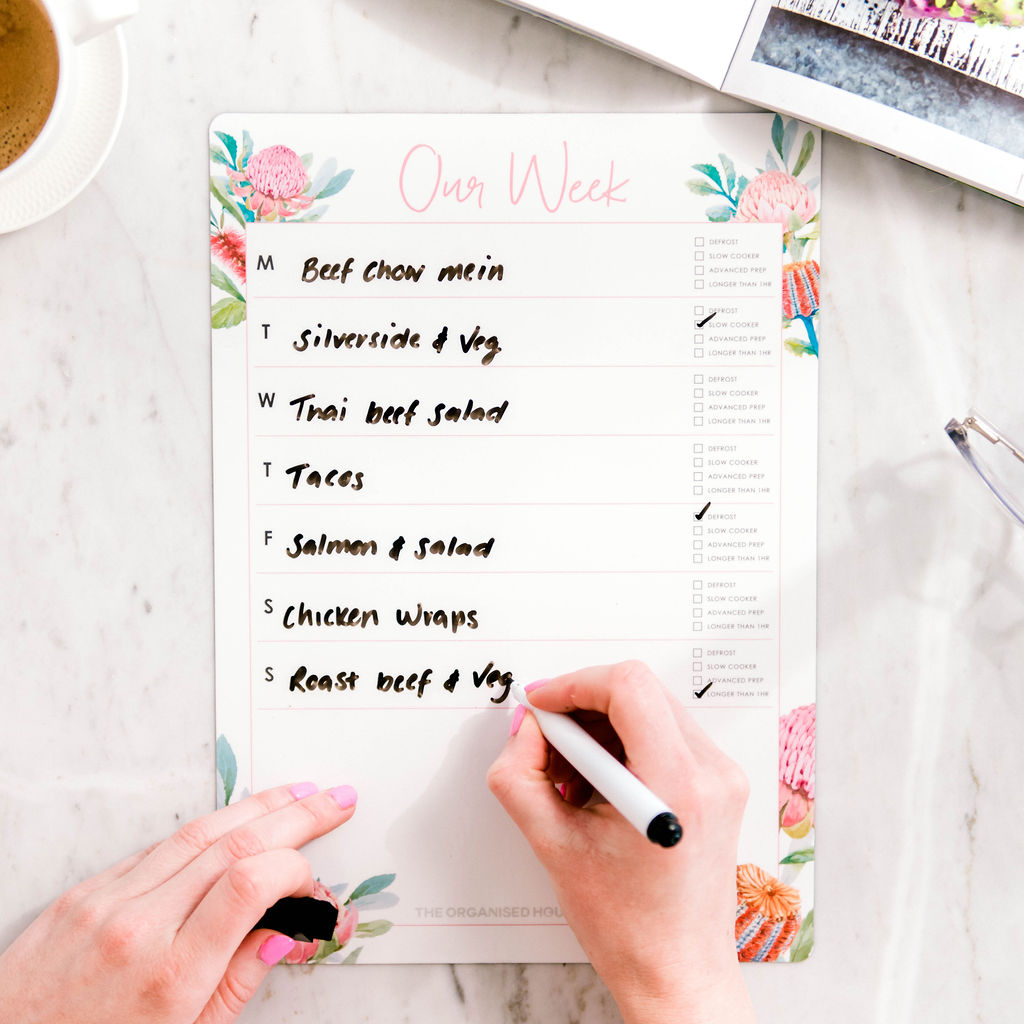 Our Week
M Beef Chow mein
DEFROST
SLOW COOKER
ADVANCED PREP
LONGER THAN 1HR
T Silverside & Veg
DEFROST
SLOW COOKER
ADVANCED PREP
LONGER THAN 1HR
W Thai beef salad
DEFROST
SLOW COOKER
ADVANCED PREP
LONGER THAN 1HR
T Tacos
DEFROST
SLOW COOKER
ADVANCED PREP
LONGER THAN 1HR
F Salmon & salad
DEFROST
SLOW COOKER
ADVANCED PREP
LONGER THAN 1HR
S Chicken wraps
DEFROST
SLOW COOKER
ADVANCED PREP
LONGER THAN 1HR
S Roast beef & Veg
DEFROST
SLOW COOKER
ADVANCED PREP
LONGER THAN 1HR
THE ORGANISED